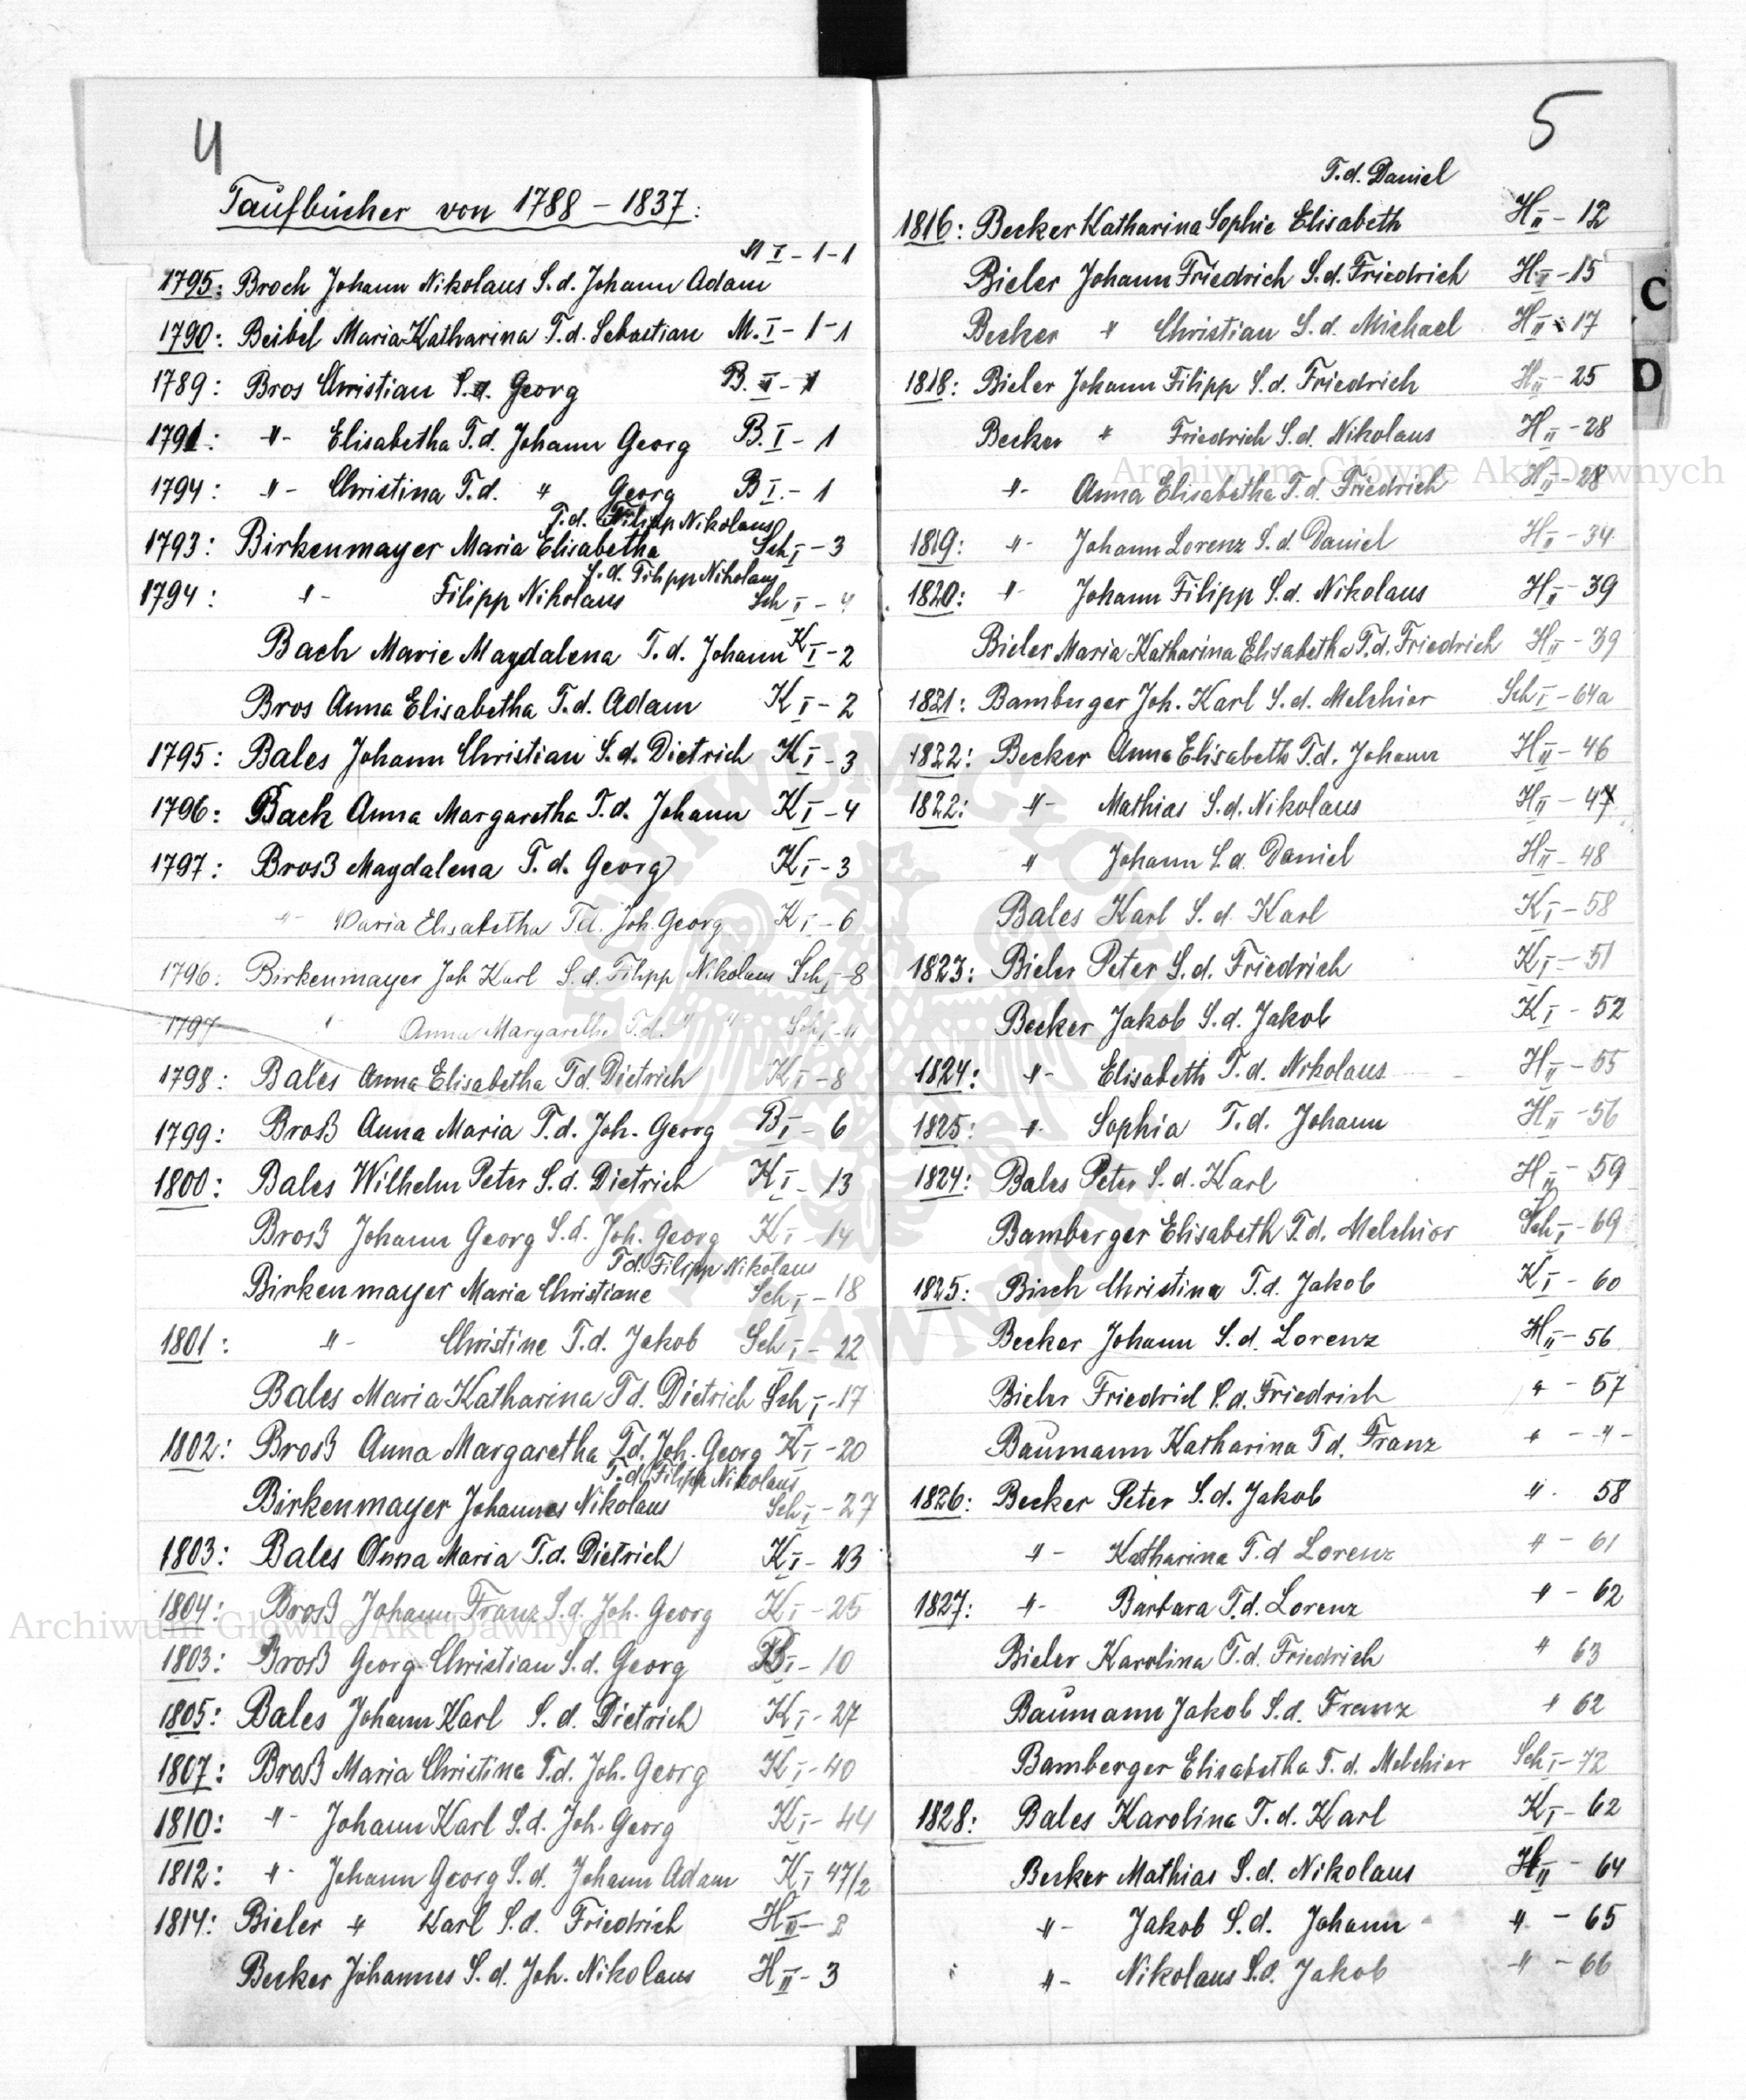 4
Taufbücher von 1788 – 1837:
M I – 1 – 1
1795: Broch Johann Nikolaus S.d. Johann Adam
1790: Beibel Maria Katharina T.d. Sebastian M. I – 1 – 1
1789: Bros Christian S.d. Georg B. II – 1
1791: –"– Elisabetha T.d. Johann Georg B. I – 1
1794: –"– Christina T.d. " Georg B I. – 1
T.d. Filipp Nikolaus
1793: Birkenmayer Maria Elisabetha Sch I – 3
S.d. Filipp Nikolaus
1794: –"– Filipp Nikolaus Sch I – 4
Bach Marie Magdalena T.d. Johann K I – 2
Bros Anna Elisabetha T.d. Adam K I – 2
1795: Bales Johann Christian S.d. Dietrich K I – 3
1796: Back Anna Margaretha T.d. Johann K I – 4
1797: Broß Magdalena T.d. Georg K I – 3
–"– Maria Elisabetha T.d. Joh. Georg K I – 6
1796: Birkenmayer Joh Karl S.d. Filipp Nikolaus Sch I – 8
1797 " Anna Margaretha T.d. " " Sch I – 11
1798: Bales Anna Elisabetha T.d. Dietrich K I – 8
1799: Broß Anna Maria T.d. Joh. Georg B I – 6
1800: Bales Wilhelm Peter S.d. Dietrich K I – 13
Broß Johann Georg S.d. Joh. Georg K I – 14
T.d. Filipp Nikolaus
Birkenmayer Maria Christiane Sch I – 18
1801: –"– Christine T.d. Jakob Sch I – 22
Bales Maria Katharina T.d. Dietrich Sch I – 17
1802: Broß Anna Margaretha T.d. Joh. Georg K I – 20
T.d. Filipp Nikolaus
Birkenmayer Johannes Nikolaus Sch I – 27
1803: Bales Anna Maria T.d. Dietrich K I – 23
1804: Broß Johann Franz S.d. Joh. Georg K I – 25
1803: Broß Georg Christian S.d. Georg B I – 10
1805: Bales Johann Karl S.d. Dietrich K I – 27
1807: Broß Maria Christina T.d. Joh. Georg K I – 40
1810: –"– Johann Karl S.d. Joh. Georg K I – 44
1812: –"– Johann Georg S.d. Johann Adam K I 47/2
1814: Bieler " Karl S.d. Friedrich H II – 2
Becker Johannes S.d. Joh. Nikolaus H II – 3
5
T.d. Daniel
1816: Becker Katharina Sophie Elisabeth H II – 12
Bieler Johann Friedrich S.d. Friedrich H II – 15
Becker " Christian S.d. Michael H II 17
1818: Bieler Johann Filipp S.d. Friedrich H II – 25
Becker " Friedrich S.d. Nikolaus H II – 28
–"– Anna Elisabetha T.d. Friedrich H II – 28
1819: –"– Johann Lorenz S.d. Daniel H II – 34
1820: –"– Johann Filipp S.d. Nikolaus H II – 39
Bieler Maria Katharina Elisabetha T.d. Friedrich H II – 39
1821: Bamberger Joh. Karl S.d. Melchior Sch I – 64a
1822: Becker Anna Elisabeth T.d. Johann H II – 46
1822: –"– Mathias S.d. Nikolaus H II – 47
" Johann S.d. Daniel H II – 48
Bales Karl S.d. Karl K I – 58
1823: Bieler Peter S.d. Friedrich K I – 51
Becker Jakob S.d. Jakob K I – 52
1824: –"– Elisabeth T.d. Nikolaus H II – 55
1825: –"– Sophia T.d. Johann H II – 56
1824: Bales Peter S.d. Karl H II – 59
Bamberger Elisabeth T.d. Melchior Sch I – 69
1825: Birch Christina T.d. Jakob K I – 60
Becker Johann S.d. Lorenz H II – 56
Bieler Friedrich S.d. Friedrich " – 57
Baumann Katharina T.d. Franz " – " –
1826: Becker Peter S.d. Jakob " 58
–"– Katharina T.d Lorenz " – 61
1827: –"– Barbara T.d. Lorenz " – 62
Bieler Karolina T.d. Friedrich " 63
Baumann Jakob S.d. Franz " 62
Bamberger Elisabetha T.d. Melchior Sch I – 72
1828: Bales Karolina T.d. Karl K I – 62
Becker Mathias S.d. Nikolaus H II – 64
–"– Jakob S.d. Johann " – 65
–"– Nikolaus S.d. Jakob " – 66
C
D
Archiwum Główne Akt Dawnych
Archiwum Główne Akt Dawnych
ARCHIWUM GŁÓWNE AKT DAWNYCH